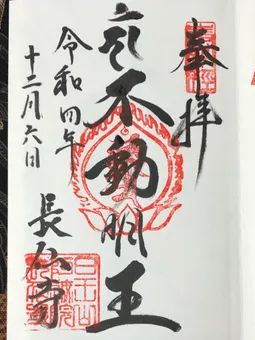 奉拝
不動明王
令和四年
十二月六日
長仙寺